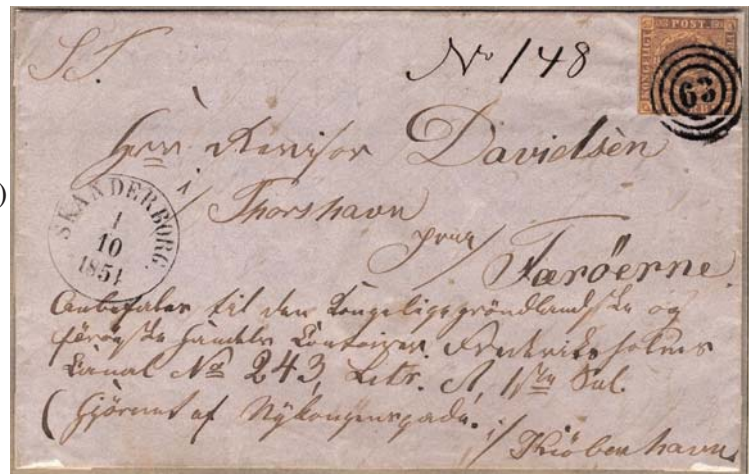 S. T.
No 148
KONGELIGT POST FRB
63
Herr Revisor Davidsèn
i
Thorshavn
paa
Færöerne.
SKANDERBORG.
1
10
1851
Anbefales til den Kongelige gröndlandske og
færöeske Handels Contoirer. Frederiksholms
Canal No 243, Litr. A, 1ste Sal.
(Hjörnet af Nykongensgade. i/
Kiöbenhavn.
)